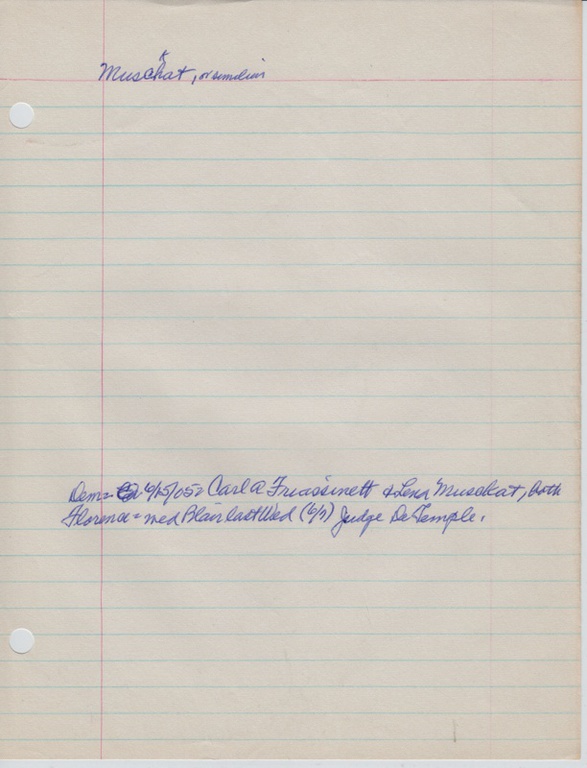 Muschat, or similar
k
Dem = 6/15/05 = Carl A Friassinett & Lena Muschat, both
Florence = med Blair last Wed (6/7) Judge DeTemple.